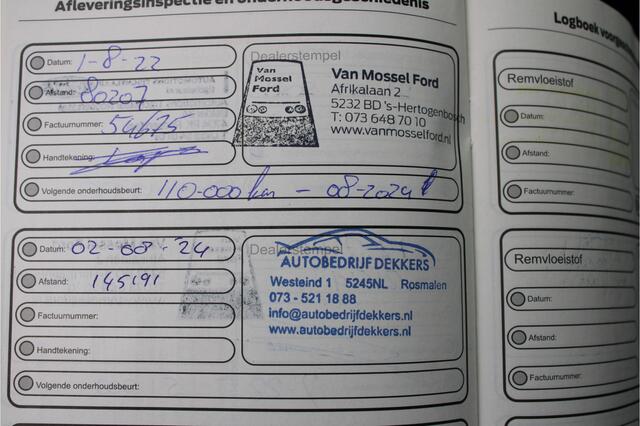 Afleveringsinspectie en onderhoudsgeschiedenis
Datum: 1-8-22
Afstand: 80207
Factuurnummer: 54675
Handtekening:
Volgende onderhoudsbeurt: 110-000 km - 08-2024
Dealerstempel
Van Mossel Ford
Van Mossel Ford
Afrikalaan 2
5232 BD 's-Hertogenbosch
T: 073 648 70 10
www.vanmosselford.nl
Datum: 02-08-24
Afstand: 145191
Factuurnummer:
Handtekening:
Volgende onderhoudsbeurt:
Dealerstempel
AUTOBEDRIJF DEKKERS
Westeind 1 5245NL Rosmalen
073 - 521 18 88
info@autobedrijfdekkers.nl
www.autobedrijfdekkers.nl
Logboek
Remvloeistof
Datum:
Afstand:
Factuurnummer:
Remvloeistof
Datum:
Afstand:
Factuurnummer: